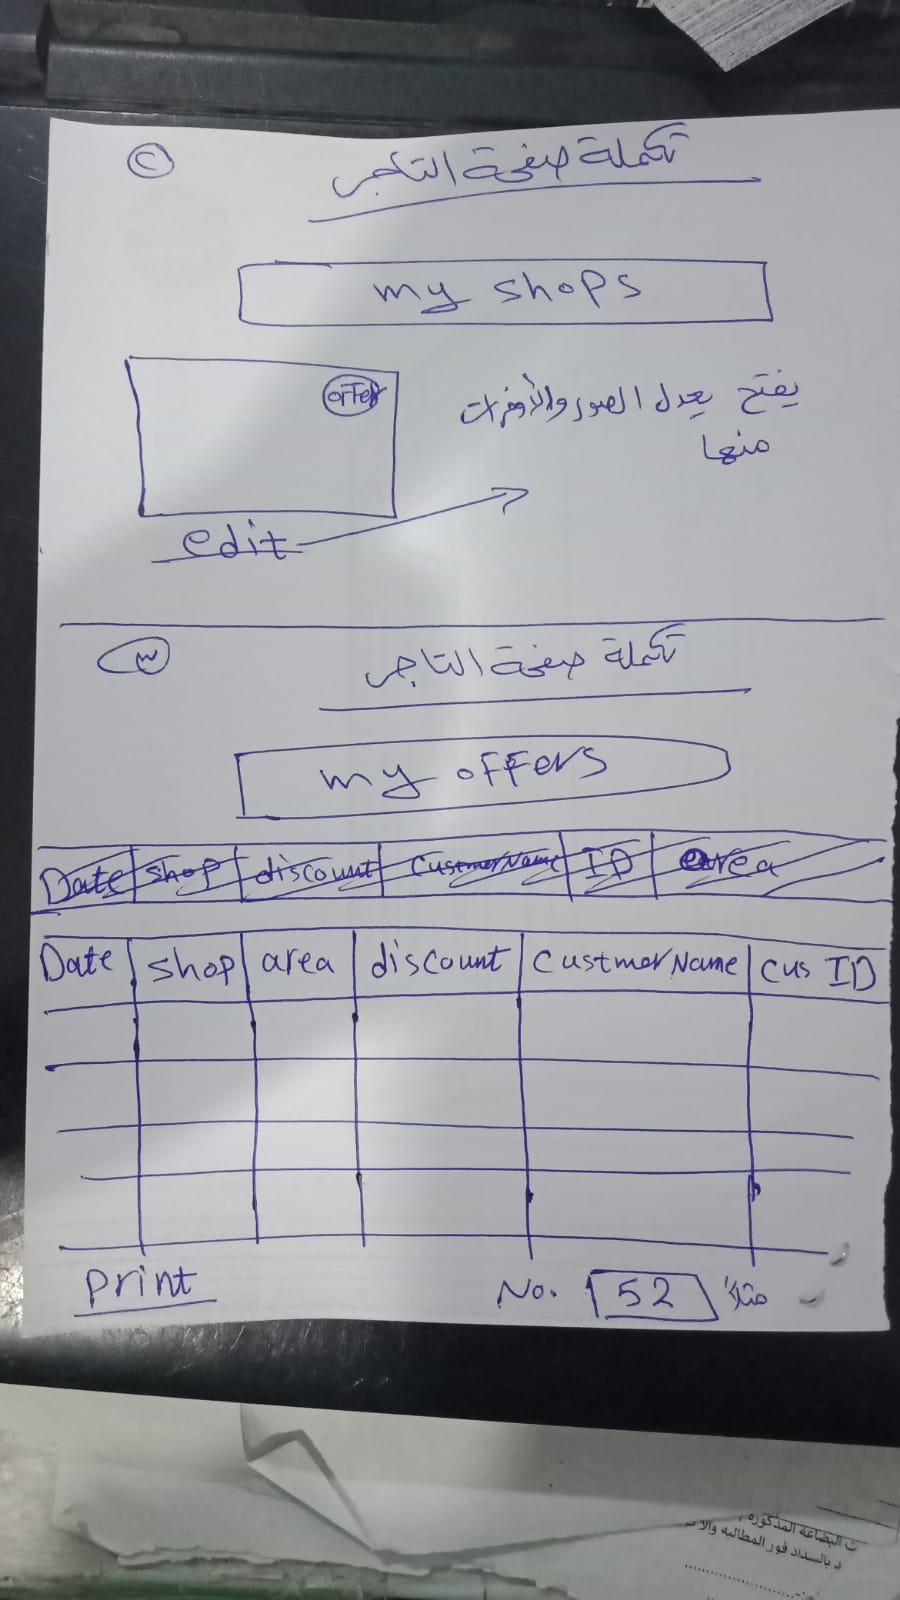 ٢ تكملة صفحة التاجر
my shops
offer
يفتح يعدل الصور والأوفرات
منها
edit
٣ تكملة صفحة التاجر
my offers
Date shop discount CustmerName ID area
Date shop area discount CustmerName Cus ID
print No. 52 مثلاً
ت البضاعة المذكورة
د بالسداد فور المطالبه والا